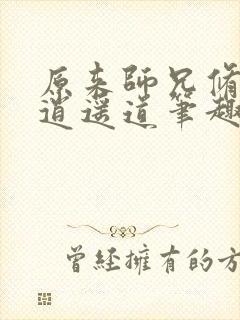 原来師兄脩
逍遥道筆趣
曾經擁有的方